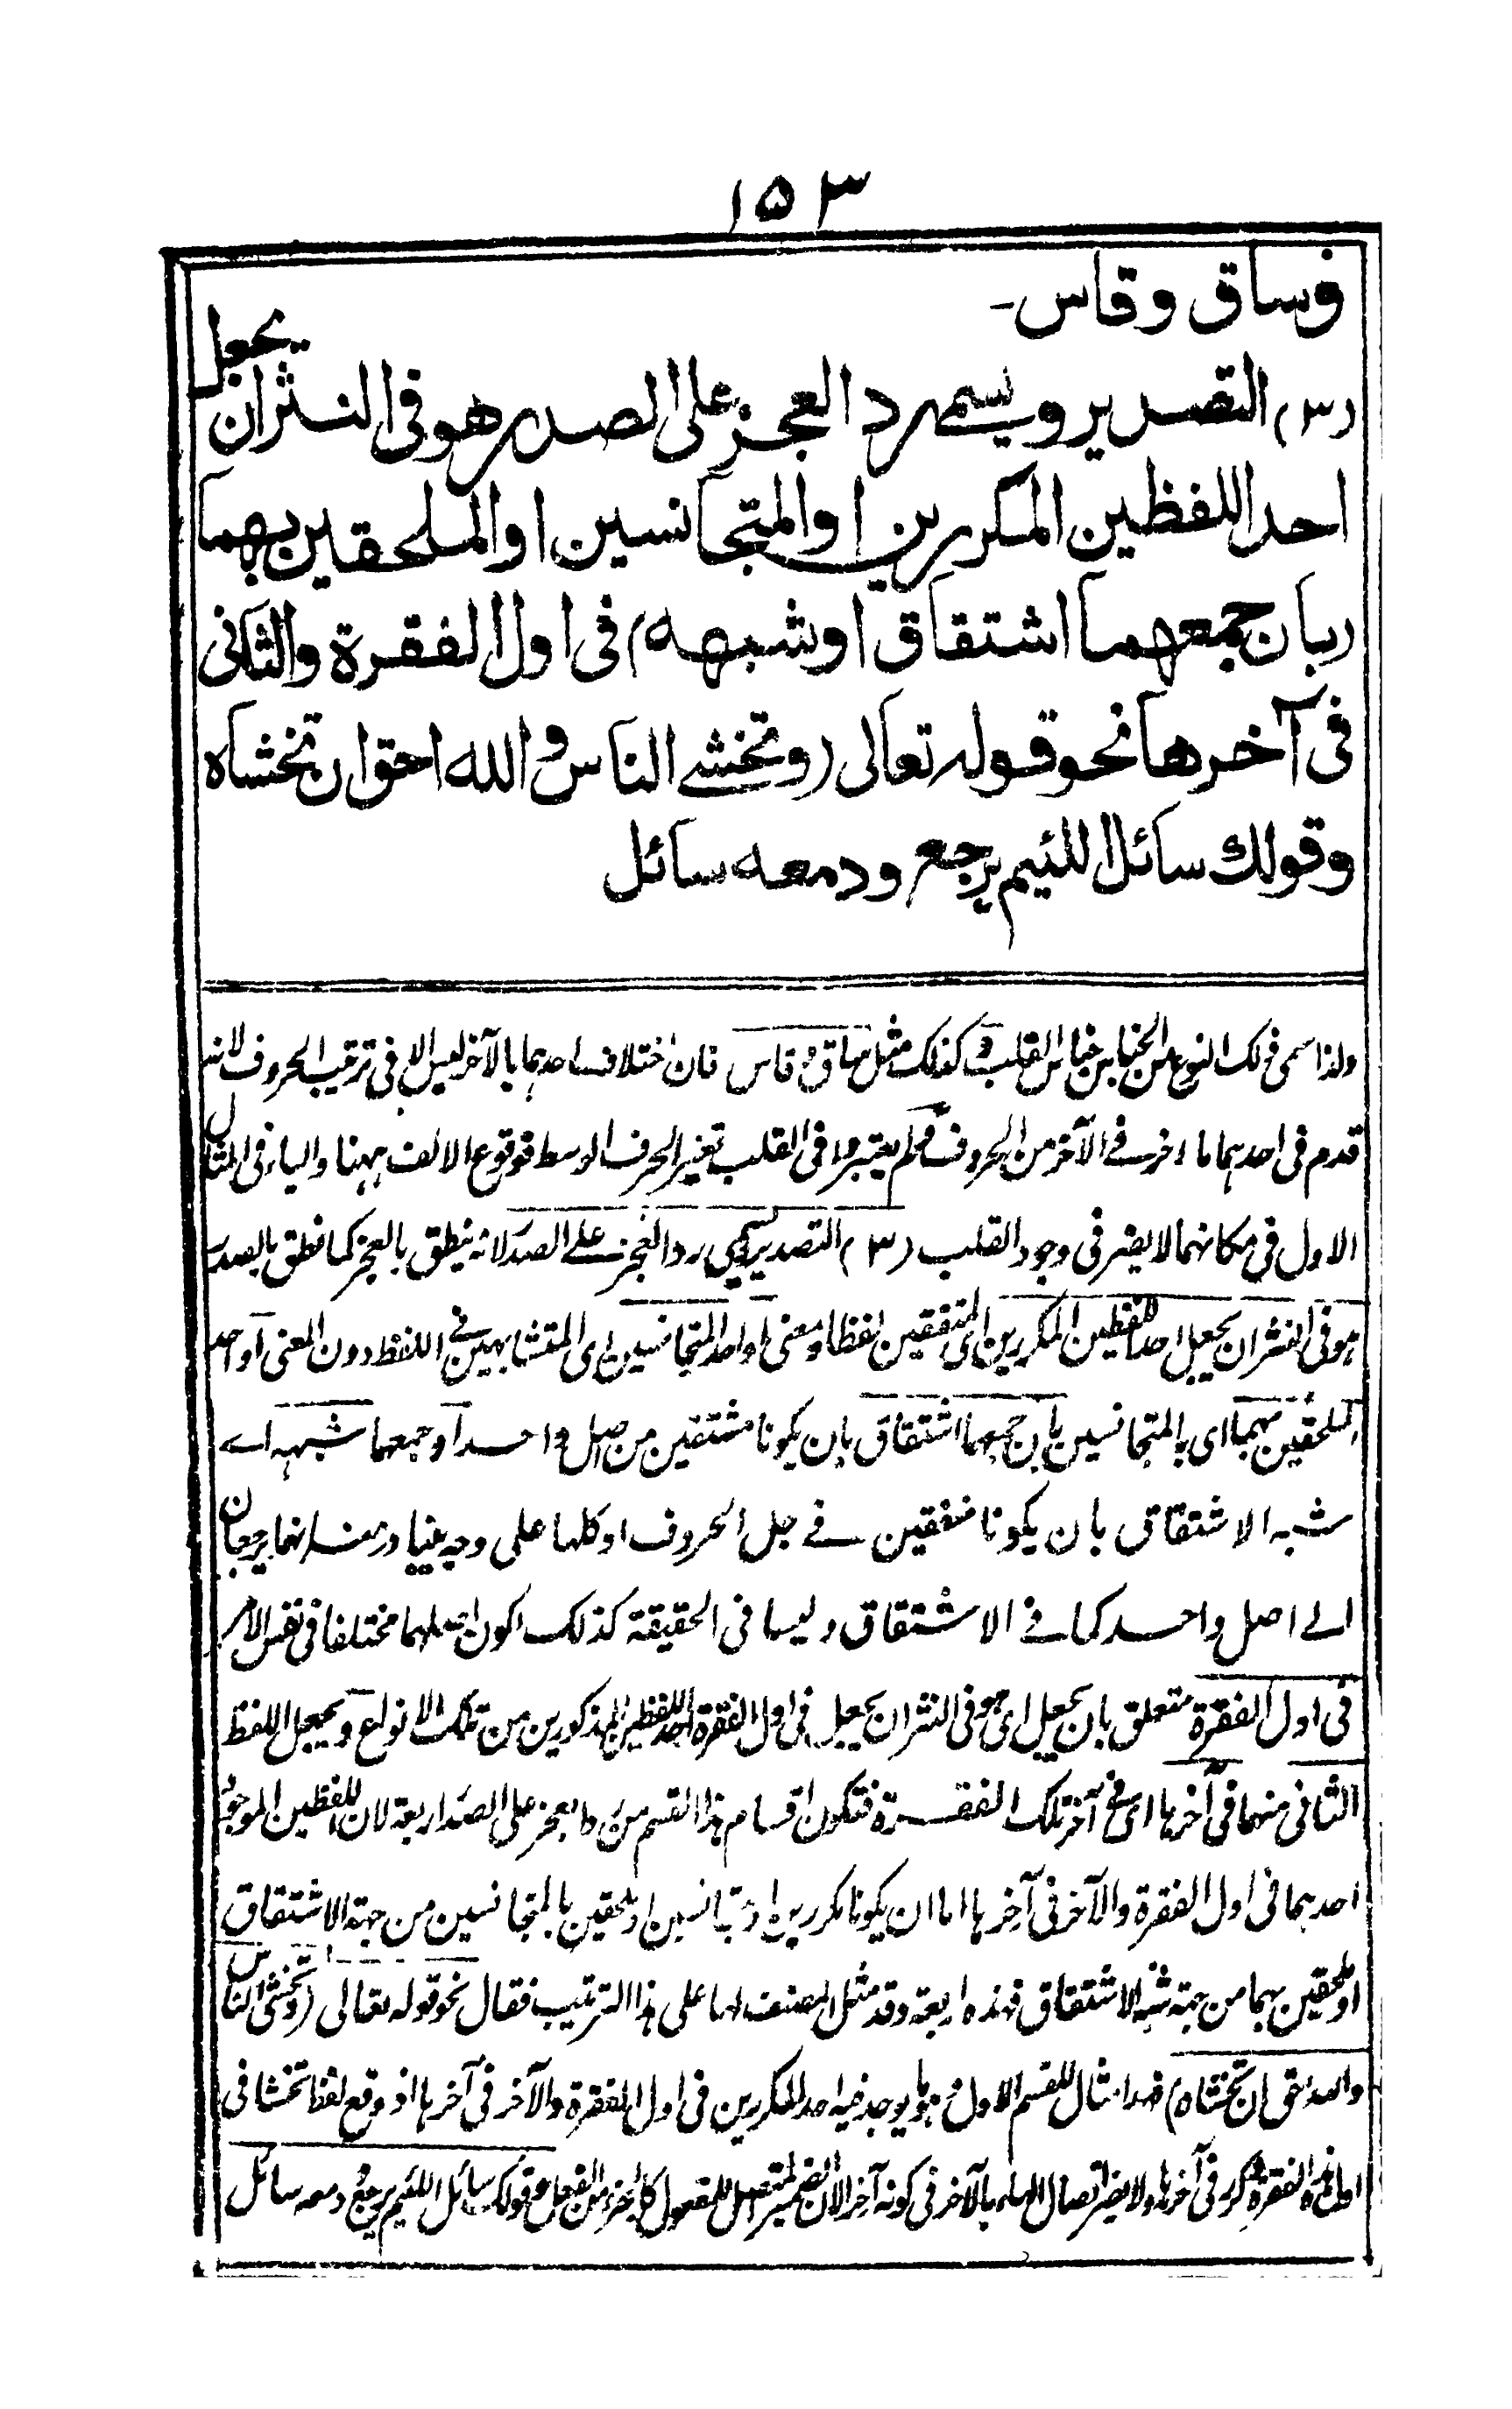 ١٥٣
وساق وقاس۔
(٣) التصدير ويسمى رد العجز على الصدر هو فى النثر ان يجعل
احد اللفظين المكررين او المتجانسين او الملحقين بهما
(بان جمعهما اشتقاق او شبهه) فى اول الفقرة والثانى
فى آخرها نحو قوله تعالى (وتخشى الناس والله احق ان تخشاه
وقولك سائل اللئيم يرجع ودمعه سائل
ولذا سمى ذلك النوع من الجناس جناس القلب وكذلك مثل ساق وقاس فان اختلاف احدهما بالآخر ليس الا فى ترتيب الحروف لانه
قدم فى احدهما ما اخر فى الآخر من الحروف ولم يعتبروا فى القلب تغيير الحرف الوسط فوقوع الالف ههنا والياء فى المثال
الاول فى مكانهما لا يضر فى وجود القلب (٣) التصدير ويسمى رد العجز على الصدر لانه ينطق بالعجز كما نطق بالصدر
هو فى النثر ان يجعل احد اللفظين المكررين اى المتفقين لفظا ومعنى او احد المتجانسين اى المتشابهين فى اللفظ دون المعنى او احد
الملحقين بهما اى بالمتجانسين بان جمعهما اشتقاق بان يكونا مشتقين من اصل واحد او جمعهما شبهه اى
شبه الاشتقاق بان يكونا متفقين فى جل الحروف او كلها على وجه يتبادر منه انهما يرجعان
الى اصل واحد كما فى الاشتقاق وليسا فى الحقيقة كذلك لكون اصلهما مختلفا فى نفس الامر
فى اول الفقرة متعلق بان يجعل اى هو فى النثر ان يجعل فى اول الفقرة احد اللفظين المذكورين من تلك الانواع ويجعل اللفظ
الثانى منهما فى آخرها اى فى آخر تلك الفقرة فتكون اقسام هذا القسم من رد العجز على الصدر اربعة لان اللفظين الموجود
احدهما فى اول الفقرة والآخر فى آخرها اما ان يكونا مكررين او متجانسين او ملحقين بالمتجانسين من جهة الاشتقاق
او ملحقين بهما من جهة شبه الاشتقاق فهذه اربعة وقد مثل المصنف لها على هذا الترتيب فقال نحو قوله تعالى (وتخشى الناس
والله احق ان تخشاه) هذا مثال للقسم الاول وهو ما يوجد فيه احد المكررين فى اول الفقرة والآخر فى آخرها اذ وقع لفظ تخشا فى
اول هذه الفقرة وكرر فى آخرها ولا يضر اتصال الهاء بالآخر فى كونه آخرا لان الضمير المتصل للمفعول كالجزء من الفعل وقولك سائل اللئيم يرجع ودمعه سائل